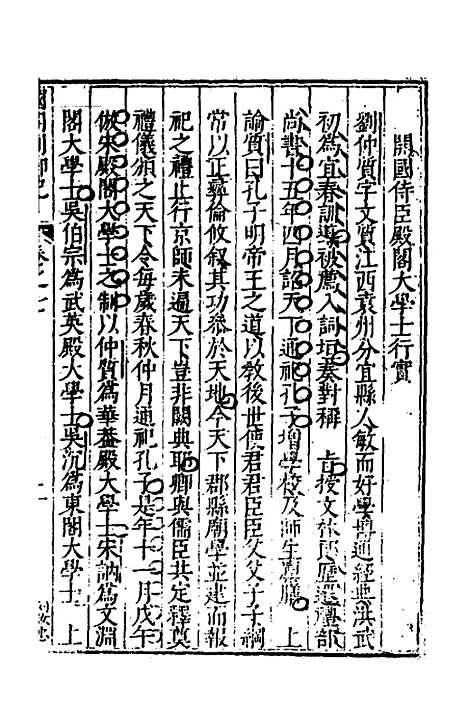 開國侍臣殿閣大學士行實
劉仲質字文質江西袁州分宜縣人敏而好學博通經典洪武
初為宜春訓導被薦入詞垣奏對稱 上旨授文林郎歷遷禮部
尚書十五年四月詔天下通祀孔子增學校及師生廩膳 上
諭質曰孔子明帝王之道以教後世使君君臣臣父父子子綱
常以正彝倫攸敘其功參於天地今天下郡縣廟學並建而報
祀之禮止行京師未遍天下豈非闕典耶卿與儒臣共定釋奠
禮儀頒之天下令每歲春秋仲月通祀孔子是年十一月戊午
倣宋殿閣大學士之制以仲質為華蓋殿大學士宋訥為文淵
閣大學士吳伯宗為武英殿大學士吳沉為東閣大學士 上
卷之七